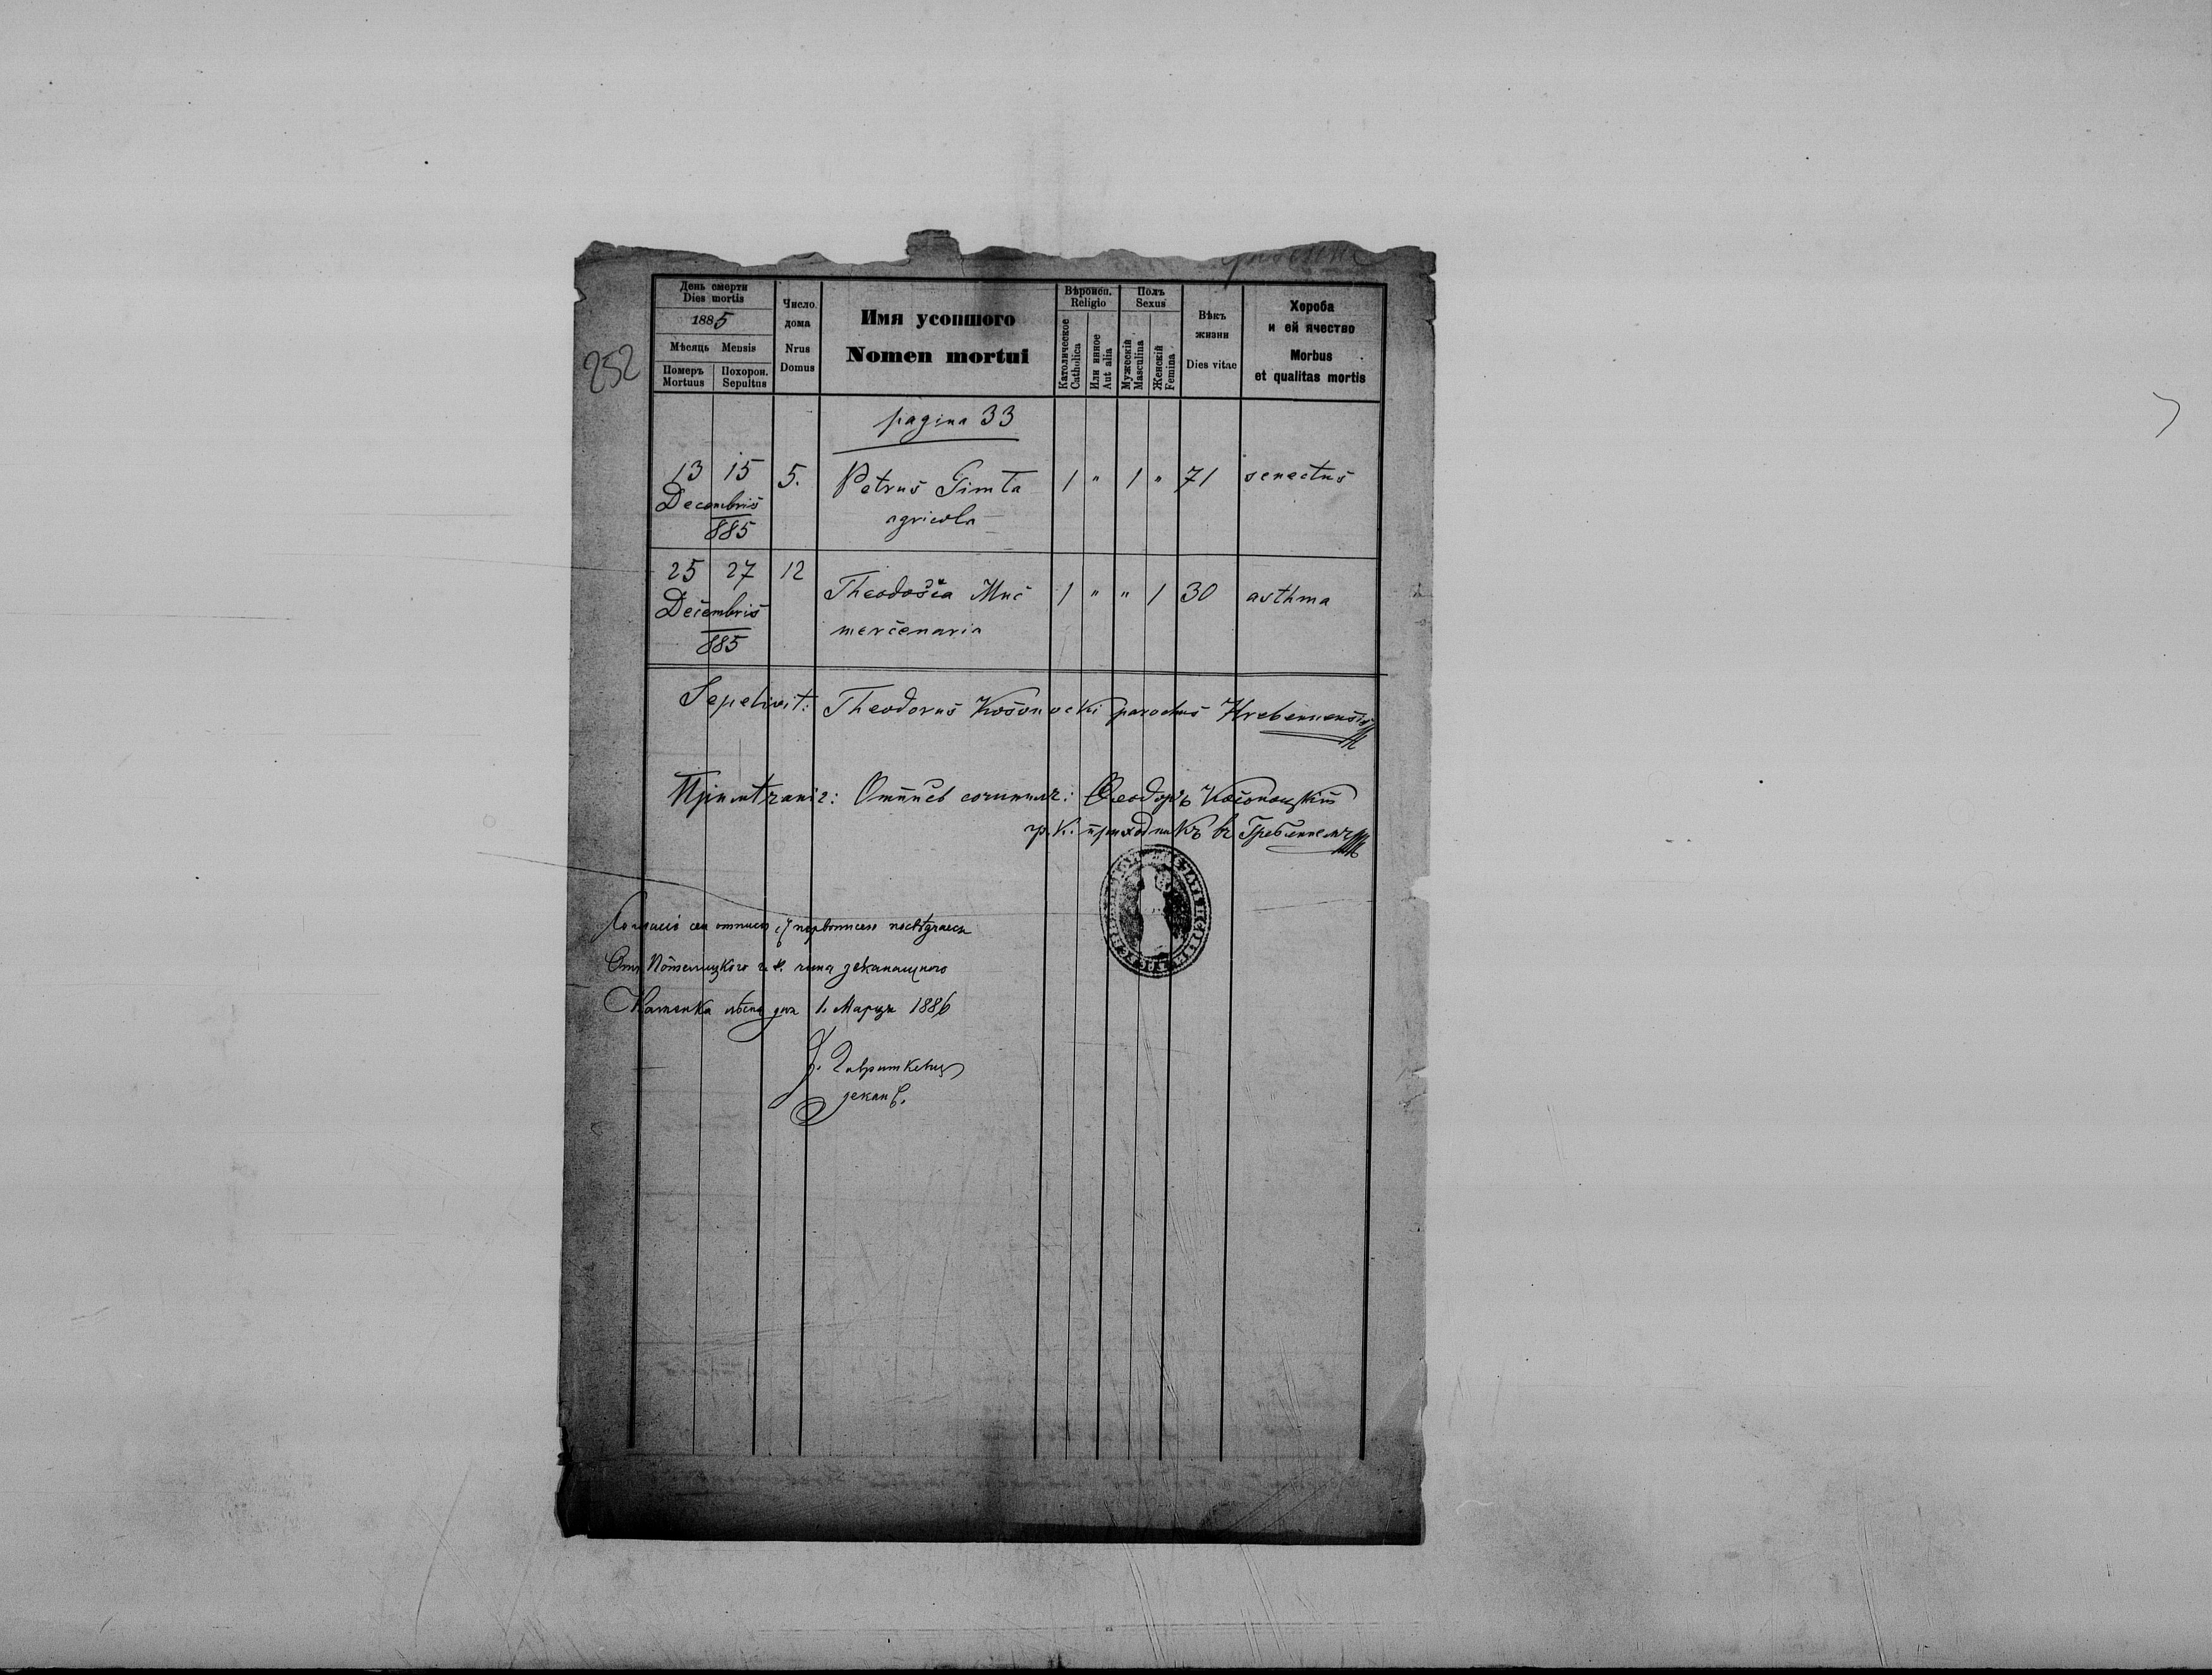 252
День смерти
Dies mortis
1885
Мѣсяць Mensis
Померъ Похорон.
Mortuus Sepultus
Число
дома
Nrus
Domus
Имя усопшого
Nomen mortui
Вѣроисп.
Religio
Католическое
Catholica
Или инное
Aut alia
Полъ
Sexus
Мужескій
Masculina
Женскій
Femina
Вѣкъ
жизни
Dies vitae
Хороба
и ей ячество
Morbus
et qualitas mortis
pagina 33
13 15 5. Petrus Gimta 1 " 1 " 71 senectus
Decembris agricola
885
25 27 12 Theodosia Muc 1 " " 1 30 asthma
Decembris mercenaria
885
Sepelivit: Theodorus Kosonocki parochus Hrebennensis
Примѣчаніе: Отпись сочинилъ: Ѳеодоръ Косоноцкій
гр. к. приходникъ въ Гребенномъ
сей отписи съ первописею посвѣдчаеся
Отъ г. к. чина деканацкого
Каменка дня 1. Марця 1886
декан.